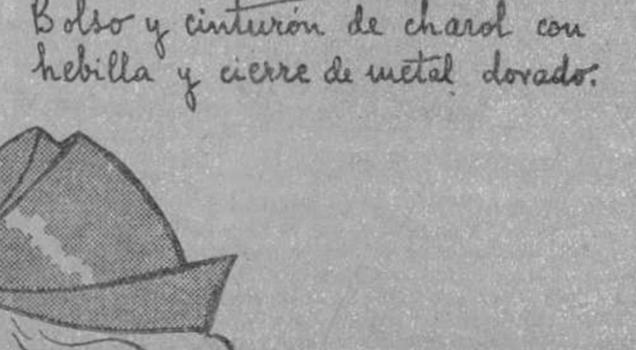 Bolso y cinturón de charol con
hebilla y cierre de metal dorado.